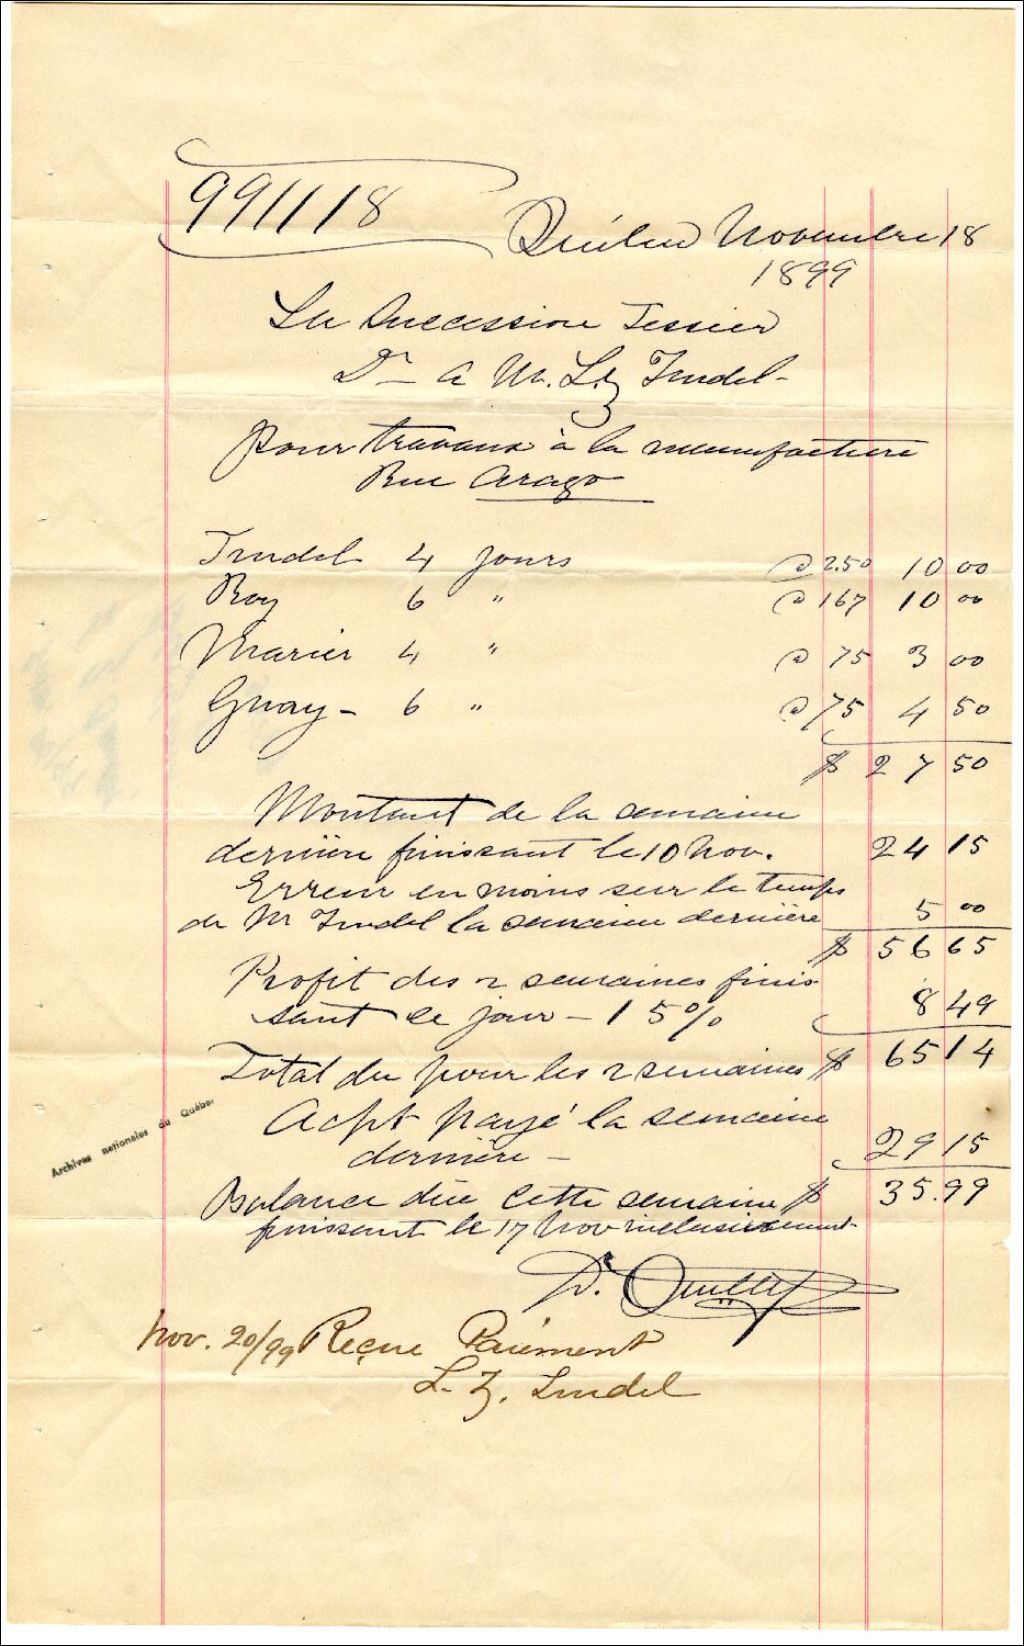 991118
Québec Novembre 18
1899
La Succession Tessier
Dr - a M. L. Z. Trudel -
Pour travaux à la manufacture
Rue Arago
Trudel 4 jours @ 2.50 10 00
Roy 6 " @ 167 10 00
Marier 4 " @ 75 3 00
Guay - 6 " @ 75 4 50
$ 27 50
Montant de la semaine
dernière finissant le 10 Nov. 24 15
Erreur en moins sur le temps
de Mr Trudel la semaine dernière 5 00
$ 56 65
Profit des 2 semaines finis
sant ce jour - 15% 8 49
Total du pour les 2 semaines $ 65 14
Acpt payé la semaine
dernière - 29 15
Balance due cette semaine $ 35.99
finissant le 17 Nov inclusivement -
D. Ouellet
Nov. 20/99 Reçue Paiement
L. Z. Trudel
Archives nationales du Québec